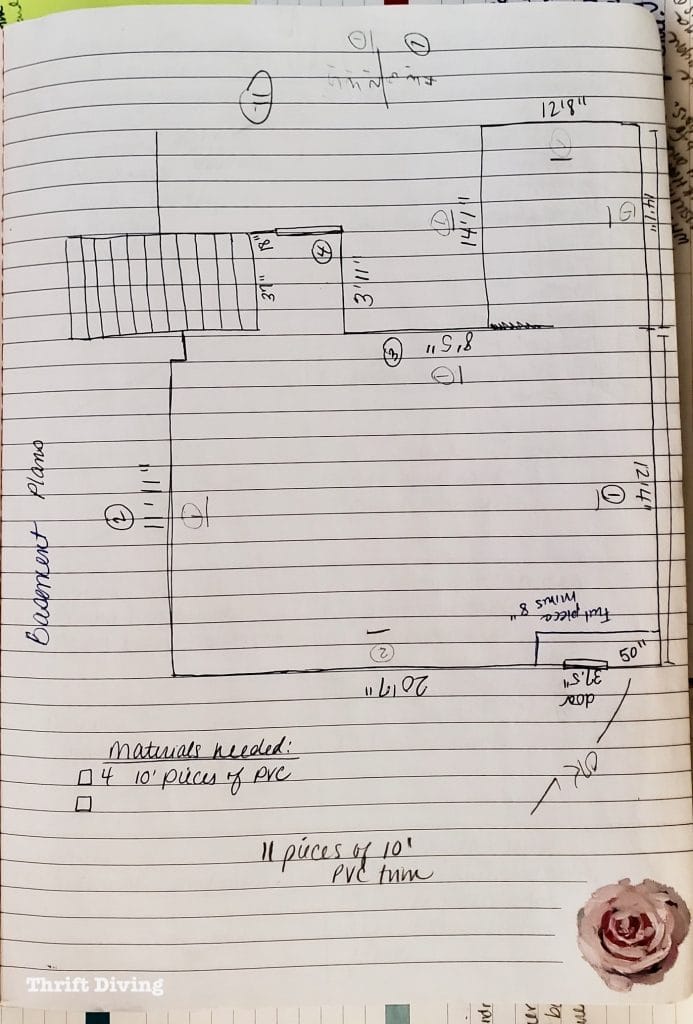 11
1
12'8"
14'1"
14'1"
18"
4
37"
3'11"
8'5"
Basement Plans
2
11'11"
1
1
12'4"
Full piece
minus 8"
50"
2
20'7"
37.5"
door
Materials needed:
4 10' pieces of PVC
11 pieces of 10'
PVC trim
Thrift Diving